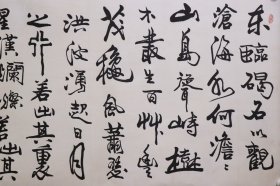 东臨碣石以觀
滄海水何澹澹
山島聳峙樹
木叢生百艸豐
茂穐風蕭瑟
洪波湧起日月
之行若出其裏
星漢爛燦若出其